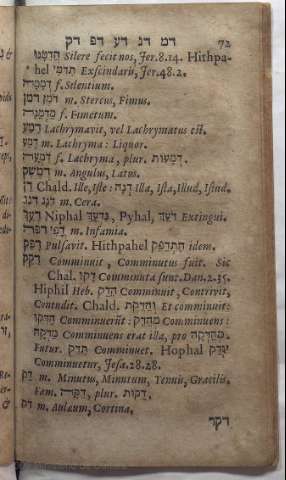 דמ דנ דע דפ דק 72
הֲדִמָּנוּ Silere fecit nos, Jer. 8.14. Hithpa-
hel תִּדֹּמִּי Exscindaris, Jer. 48.2.
דְּמָמָה f. Silentium.
דֹּמֶן m. Stercus, Fimus. דמן
מַדְמֵנָה f. Fimetum.
דָּמַע Lachrymavit, vel Lachrymatus est.
דֶּמַע m. Lachryma: Liquor.
דִּמְעָה f. Lachryma, plur. דְּמָעוֹת
דְּמֶשֶׁק m. Angulus, Latus.
דֵּן Chald. Ille, Iste: דְּנָה Illa, Ista, Illud, Istud.
דונג דנג m. Cera.
דָּעַךְ Niphal נִדְעַךְ, Pyhal, דֹּעַךְ Extingui.
דֳּפִי דפה m. Infamia.
דָּפַק Pulsavit. Hithpahel הִתְדַּפֵּק idem.
דָּקַק Comminuit, Comminutus fuit. Sic
Chal. דָּקוּ Comminuta sunt. Dan. 2.35.
Hiphil Heb. הֵדַק Comminuit, Contrivit,
Contudit. Chald. וְהַדֵּקֶת Et comminuit:
הַדִּקוּ Comminuerūt: מְהַדֵּק Comminuens:
מַדֱּקָה Comminuens erat illa, pro מְהַדְּקָה.
Futur. תַּדִּק Comminuet. Hophal יוּדָק
Comminuetur, Jesa. 28.28.
דַּק m. Minutus, Minutum, Tenuis, Gracilis.
Fam. דַּקָּה, plur. דַּקּוֹת
דֹּק m. Aulæum, Cortina.
דקר